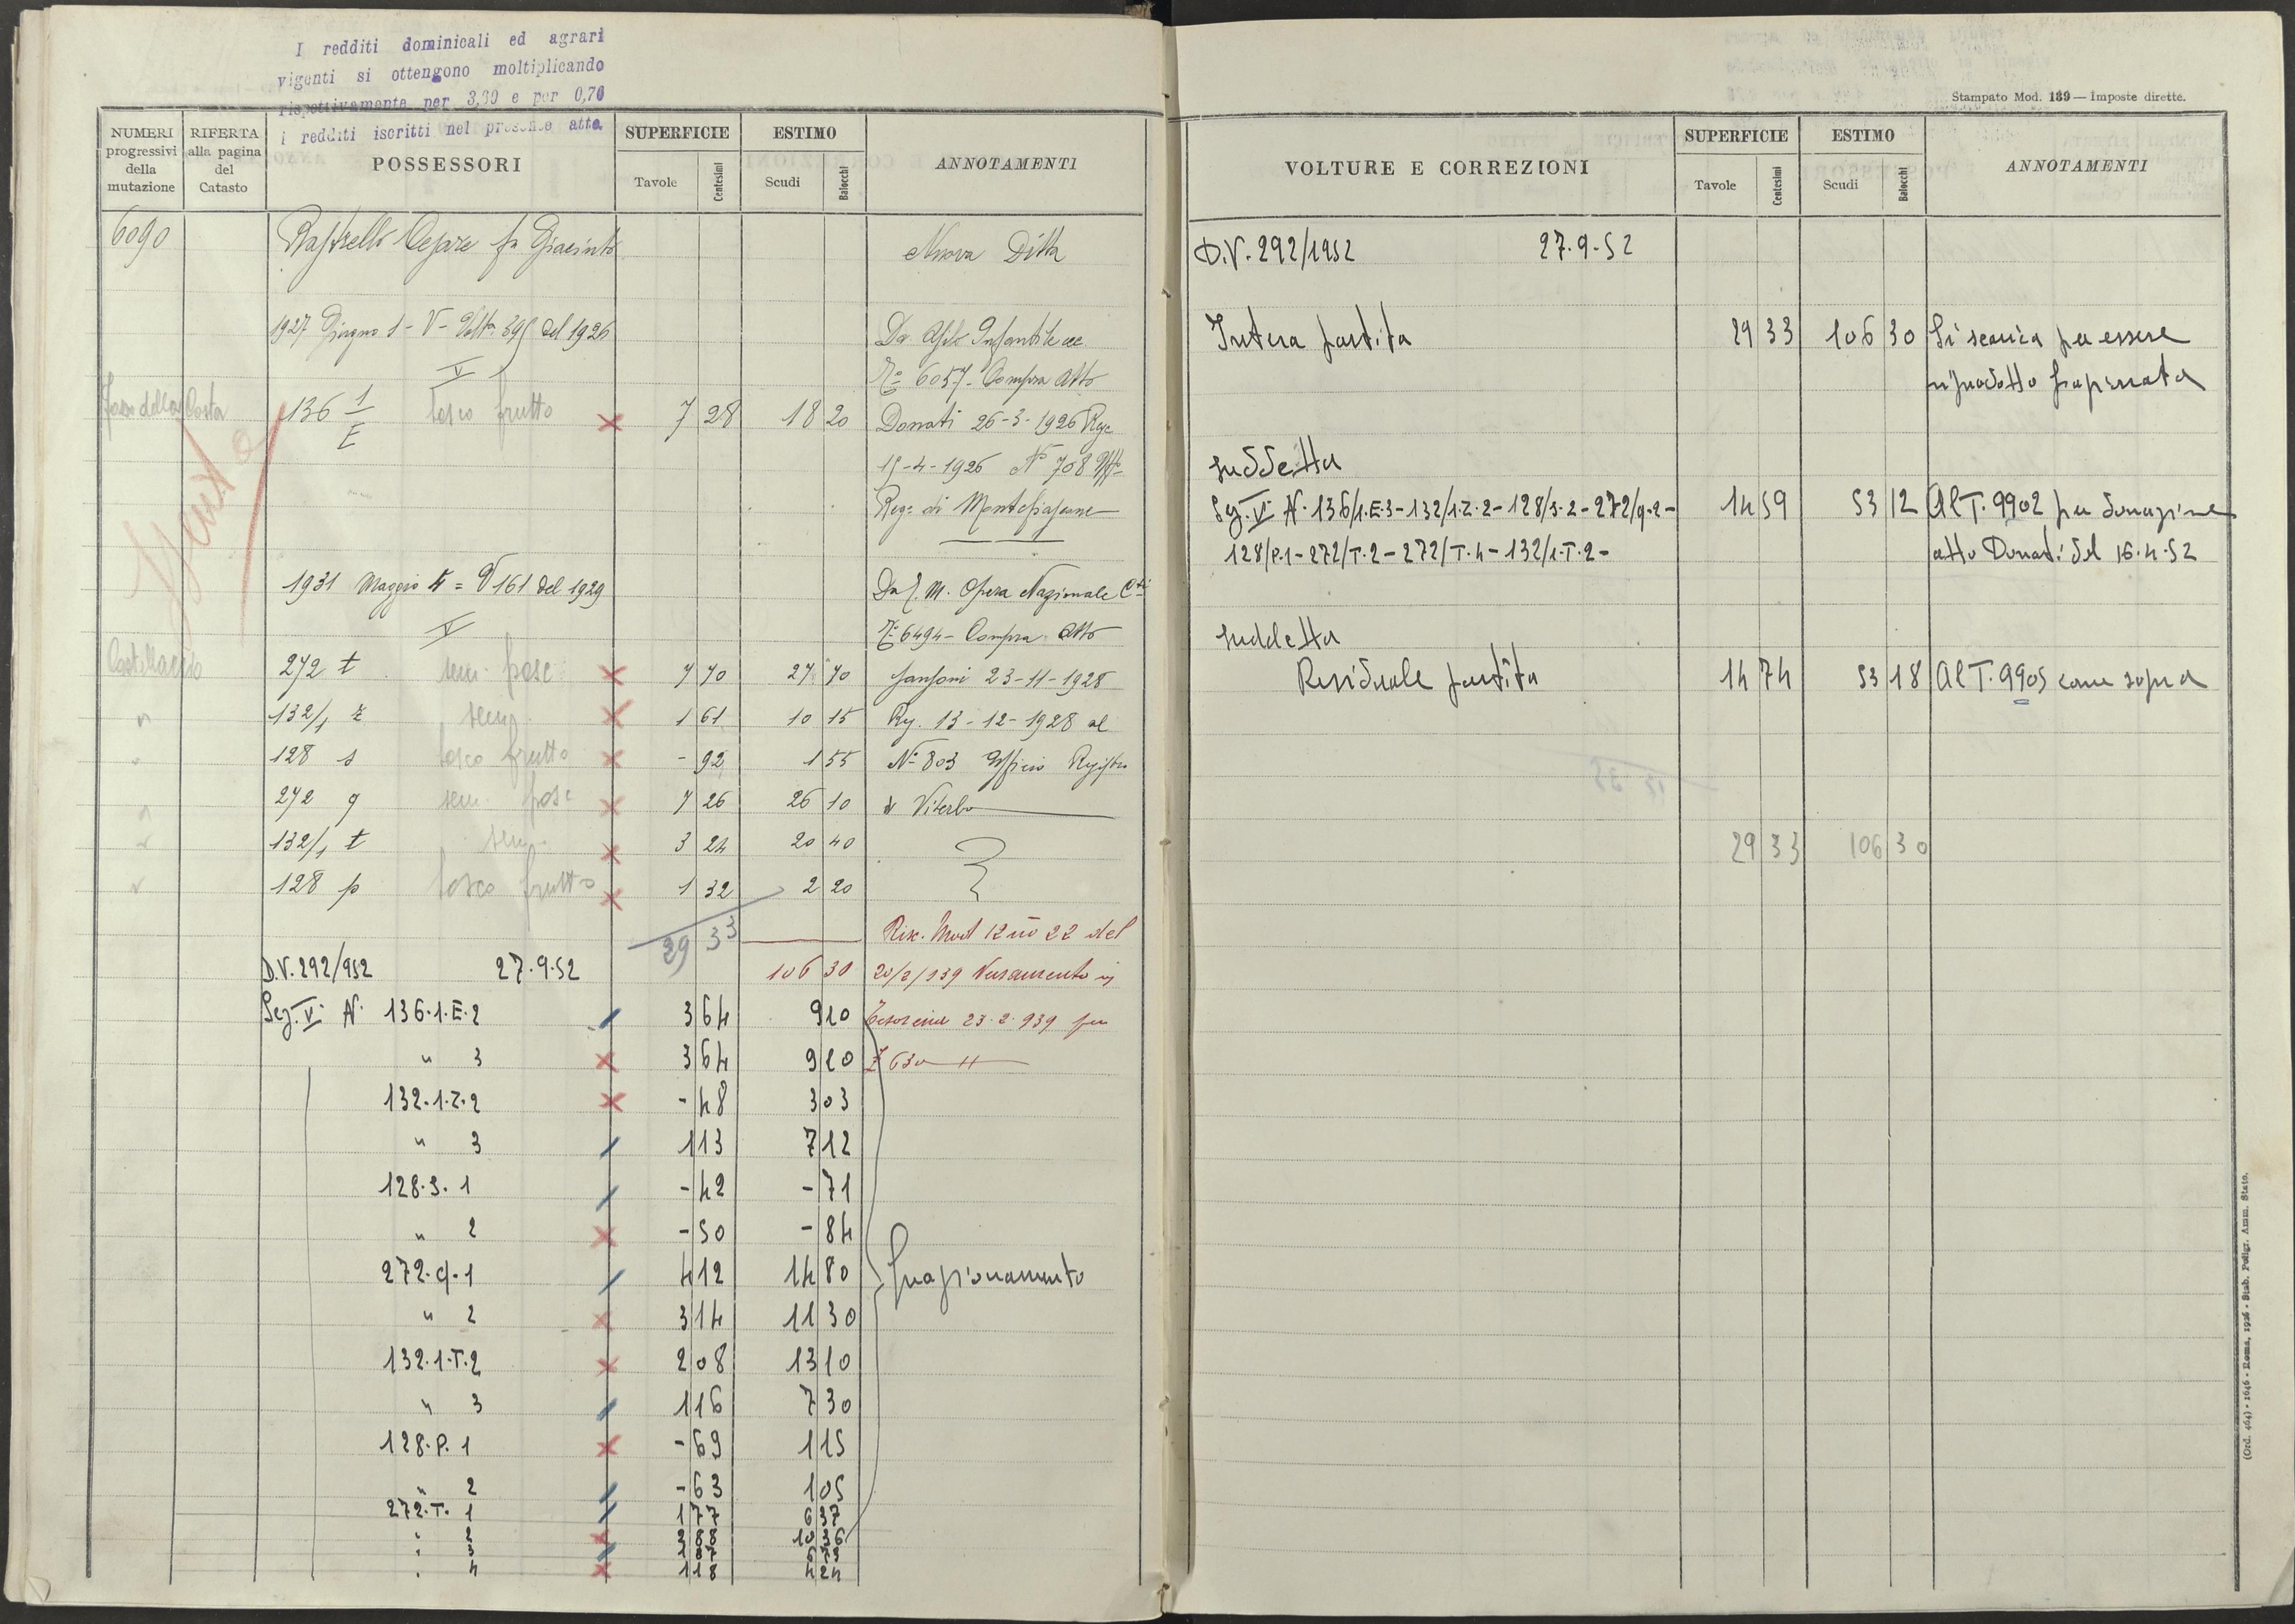 I redditi dominicali ed agrari
vigenti si ottengono moltiplicando
rispettivamente per 3,60 e per 0,70
i redditi iscritti nel presente atto.
NUMERI progressivi della mutazione
RIFERTA alla pagina del Catasto
POSSESSORI
SUPERFICIE Tavole Centesimi
ESTIMO Scudi Baiocchi
ANNOTAMENTI
6090 Rastrello Cesare fu Giacinto Nuova Ditta
1927 Giugno 1 - V - Volt. 395 del 1926 Da Asilo Infantile
V No 6057 - Compra Atto
Costa 136 1/E bosco frutto × 7 28 18 20 Donati 26-3-1926 Reg
15-4-1926 No 708 Uff
Reg. di Montefiascone
1931 Maggio 4 = V 161 del 1929 Opera Nazionale
V No 6494 - Compra Atto
Castellaccio 272 t sem. pasc × 7 70 27 70 Sansoni 23-11-1928
" 132/1 z sem. × 1 61 10 15 Reg. 13-12-1928 al
" 128 s bosco frutto × - 92 1 55 No 803 Ufficio Registro
" 272 q sem. pasc × 7 26 26 10 di Viterbo
" 132/1 t sem. × 3 24 20 40
" 128 p bosco frutto × 1 32 2 20
29 33 Risc. Mod 12 no 22 del
D.V. 292/952 27.9.52 106 30 20/2/939 Versamento in
Sez. V N. 136.1.E.2 3 64 9 10 Tesoreria 23.2.939 per
" 3 × 3 64 9 10 £ 630
132.1.Z.2 × - 48 3 03
" 3 1 13 7 12
128.S.1 - 42 - 71
" 2 × - 50 - 84
272.q.1 4 12 14 80 frazionamento
" 2 × 3 14 11 30
132.1.T.2 × 2 08 13 10
" 3 1 16 7 30
128.P.1 × - 69 1 15
" 2 - 63 1 05
272.T.1 1 77 6 37
" 2 × 2 88 10 36
" 3 1 87 6 73
" 4 × 1 18 4 24
Stampato Mod. 139 — Imposte dirette.
VOLTURE E CORREZIONI
SUPERFICIE Tavole Centesimi
ESTIMO Scudi Baiocchi
ANNOTAMENTI
D.V. 292/1952 27.9.52
Intera partita 29 33 106 30 Si scarica per essere
riprodotta frazionata
suddetta
Sez. V N. 136/1.E.3-132/1.Z.2-128/S.2-272/q.2- 14 59 53 12 Al T. 9902 per donazione
128/P.1-272/T.2-272/T.4-132/1.T.2- atto Donati del 16.4.52
suddetta
Residuale partita 14 74 53 18 Al T. 9905 come sopra
29 33 106 30
(Ord. 464) - 1646 - Roma, 1926 - Stab. Poligr. Amm. Stato.